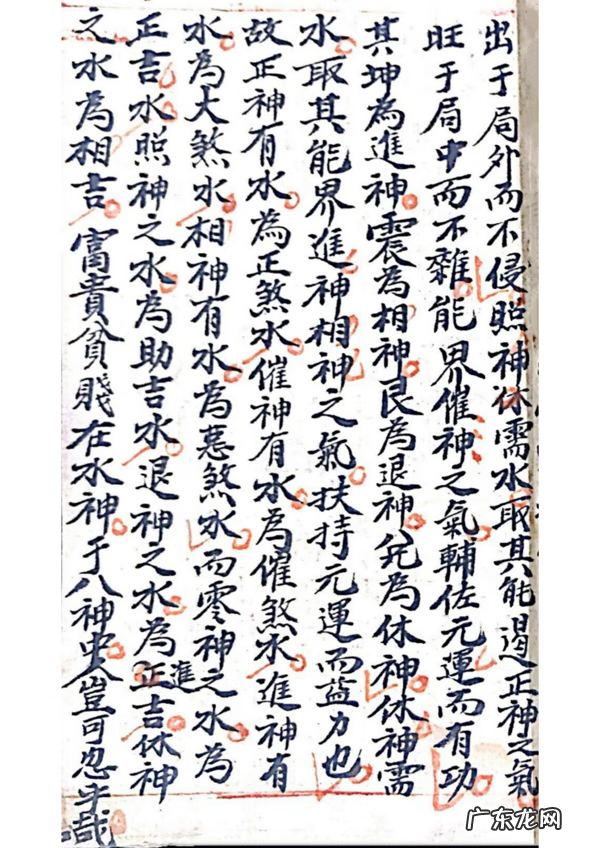 出于局外而不侵照神休需水取其能遏正神之氣
旺于局中而不雜能界催神之氣輔佐元運而有功
其坤為進神震為相神艮為退神兊為休神休神需
水取其能界進神相神之氣扶持元運而益力也
故正神有水為正煞水催神有水為催煞水進神有
水為大煞水相神有水為惡煞水而零神之水為
正吉水照神之水為助吉水退神之水為進吉休神
之水為相吉富貴貧賤在水神于八神中豈可忽乎哉
广东龙网